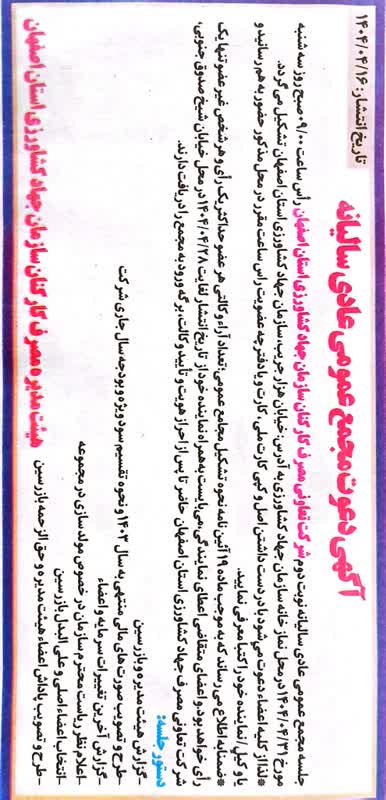 تاریخ انتشار: ۱۴۰۴/۰۴/۱۶
آگهی دعوت مجمع عمومی عادی سالیانه
جلسه مجمع عمومی عادی سالیانه نوبت دوم شرکت تعاونی مصرف کارکنان سازمان جهاد کشاورزی استان اصفهان رأس ساعت ۰۹/۰۰ صبح روز سه شنبه
مورخ ۱۴۰۴/۰۴/۳۱ در محل نمازخانه سازمان جهاد کشاورزی به آدرس: خیابان هزار جریب، سازمان جهاد کشاورزی استان اصفهان تشکیل می گردد.
*لذا از کلیه اعضاء دعوت می شود با در دست داشتن اصل و کپی کارت ملی، کارت و یا دفترچه عضویت راس ساعت مقرر در محل مذکور حضور به هم رسانید و
یا وکیل / نماینده خود را کتبا معرفی نمایید.
*ضمنا به اطلاع می رساند که به موجب ماده ۱۹ آئین نامه نحوه تشکیل مجامع عمومی، تعداد آراء وکالتی هر عضو حداکثر یک رأی و هر شخص غیر عضو تنها یک
رأی خواهد بود. و اعضای متقاضی اعطای نمایندگی، می بایست به همراه نماینده خود از تاریخ انتشار لغایت ۱۴۰۴/۰۴/۲۸ در محل خیابان شیخ صدوق جنوبی،
شرکت تعاونی مصرف جهاد کشاورزی استان اصفهان حاضر تا پس از احراز هویت و تأیید وکالت، برگه ورود به مجمع را دریافت دارند.
دستور جلسه:
-گزارش هیئت مدیره و بازرسین
-طرح و تصویب صورت های مالی منتهی به سال ۱۴۰۳ و نحوه تقسیم سود ویژه و بودجه سال جاری شرکت
-گزارش آخرین تغییرات سرمایه و اعضاء
-اعلام نظر ریاست محترم سازمان در خصوص مولد سازی در مجموعه
-انتخاب اعضاء اصلی و علی البدل بازرسین
-طرح و تصویب پاداش اعضاء هیئت مدیره و حق الزحمه بازرسین
هیئت مدیره مصرف کارکنان سازمان جهاد کشاورزی استان اصفهان